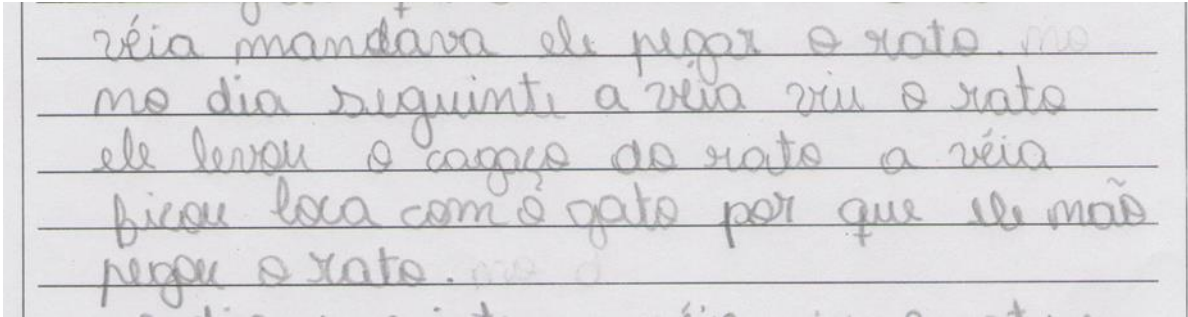 véia mandava ele pegar o rato.
no dia seguinte a véia viu o rato
ele levou o cagaço do rato a véia
ficou loca com o gato por que ele não
pegou o rato.